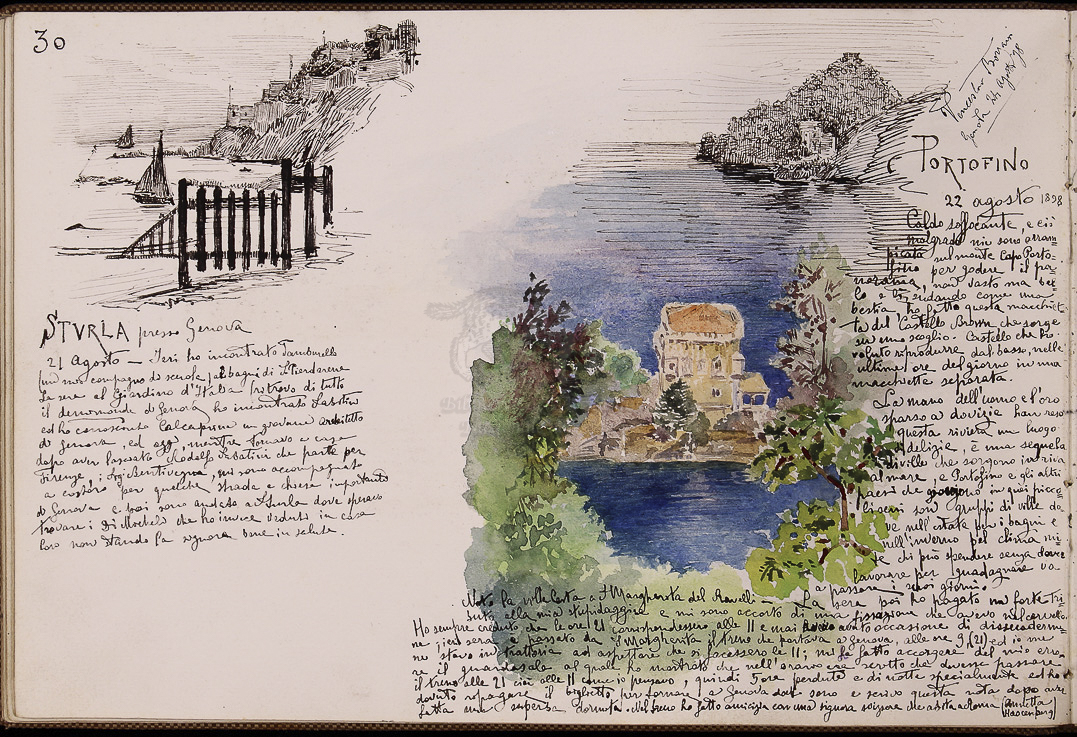 30
STURLA presso Genova
21 Agosto — Ieri ho incontrato Tamburello
(un mio compagno di scuola) ai bagni di S. Pierdarena
La sera al Giardino d'Italia, ritrovo di tutto
il demi monde di Genova, ho incontrato Sabatini
ed ho conosciuto Calcaprina un giovane architetto
di Genova, ed oggi, mentre tornavo a casa
dopo aver lasciato Rodolfo Sabatini che parte per
Firenze, Bentivegna, mi sono accompagnato
a costoro per qualche strada e chiesa importante
di Genova e poi sono andato a Sturla dove speravo
trovare i Di che ho invece veduti in casa
loro non stando la signora bene in salute.
Genova 24 agosto 98
PORTOFINO
22 agosto 1898
Caldo soffocante, e ciò
malgrado mi sono arram=
picato sul monte Capo Porto=
fino per godere il pa=
norama, non vasto ma bel=
lo e sudando come una
bestia ho fatto questa macchiet=
ta del Castello Brown che sorge
su uno scoglio. Castello che ho
voluto riprodurre dal basso, nelle
ultime ore del giorno in una
macchietta separata.
La mano dell'uomo e l'oro
sparso a dovizia han reso
questa riviera un luogo
di delizie, è una sequela
di ville che sorgono in riva
al mare, e Portofino e gli altri
paesi che sorgono in quei picco=
li seni son gruppi di ville do=
ve nell'estate per i bagni e
nell'inverno pel clima mi=
te chi può spendere senza dover
lavorare per guadagnare va
a passare i suoi giorni.
Noto la villa Costa a S. Margherita del Rovelli — La sera poi ho pagato un forte tri=
buto alla mia stupidaggine e mi sono accorto di una fissazione che avevo nel cervello.
Ho sempre creduto che le ore 21 corrispondessero alle 11 e mai avuto occasione di disincantarm=
ne; ieri sera è passato da S. Margherita il treno che portava a Genova, alle ore 9 (21) ed io me
ne stavo in trattoria ad aspettare che si facessero le 11; mi ha fatto accorgere del mio erro=
re il guardasala al quale ho mostrato che nell'orario era scritto che doveva passare
il treno alle 21 cioè alle 11 come io pensavo, quindi 5 ore perdute e di notte specialmente ed ho
dovuto ripagare il biglietto per tornare a Genova dove sono e scrivo questa nota dopo aver
fatta una superba dormita. Nel treno ho fatto amicizia con una signora svizzera che abita a Roma